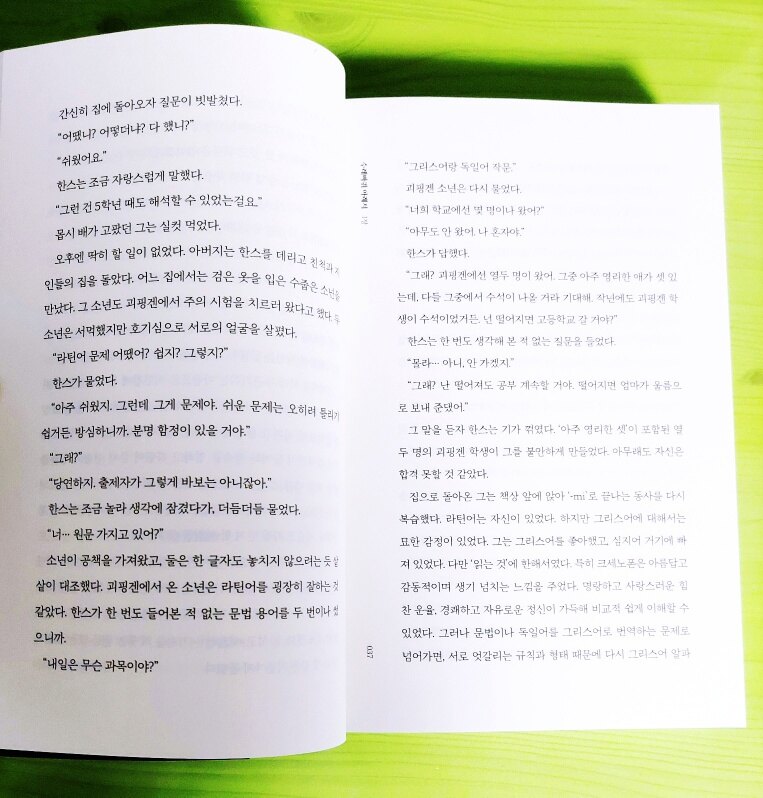 간신히 집에 돌아오자 질문이 빗발쳤다.
“어땠니? 어떻더냐? 다 했니?”
“쉬웠어요.”
한스는 조금 자랑스럽게 말했다.
“그런 건 5학년 때도 해석할 수 있었는걸요.”
몹시 배가 고팠던 그는 실컷 먹었다.
오후엔 딱히 할 일이 없었다. 아버지는 한스를 데리고 친척과 지
인들의 집을 돌았다. 어느 집에서는 검은 옷을 입은 수줍은 소년을
만났다. 그 소년도 괴핑겐에서 주의 시험을 치르러 왔다고 했다. 두
소년은 서먹했지만 호기심으로 서로의 얼굴을 살폈다.
“라틴어 문제 어땠어? 쉽지? 그렇지?”
한스가 물었다.
“아주 쉬웠지. 그런데 그게 문제야. 쉬운 문제는 오히려 틀리기
쉽거든. 방심하니까. 분명 함정이 있을 거야.”
“그래?”
“당연하지. 출제자가 그렇게 바보는 아니잖아.”
한스는 조금 놀라 생각에 잠겼다가, 더듬더듬 물었다.
“너… 원문 가지고 있어?”
소년이 공책을 가져왔고, 둘은 한 글자도 놓치지 않으려는 듯 샅
샅이 대조했다. 괴핑겐에서 온 소년은 라틴어를 굉장히 잘하는 것
같았다. 한스가 한 번도 들어본 적 없는 문법 용어를 두 번이나 썼
으니까.
“내일은 무슨 과목이야?”
수레바퀴 아래서 1장
“그리스어랑 독일어 작문.”
괴핑겐 소년은 다시 물었다.
“너희 학교에선 몇 명이나 왔어?”
“아무도 안 왔어. 나 혼자야.”
한스가 답했다.
“그래? 괴핑겐에선 열두 명이 왔어. 그중 아주 영리한 애가 셋 있
는데, 다들 그중에서 수석이 나올 거라 기대해. 작년에도 괴핑겐 학
생이 수석이었거든. 넌 떨어지면 고등학교 갈 거야?”
한스는 한 번도 생각해 본 적 없는 질문을 들었다.
“몰라… 아니, 안 가겠지.”
“그래? 난 떨어져도 공부 계속할 거야. 떨어지면 엄마가 울름으
로 보내 준댔어.”
그 말을 듣자 한스는 기가 꺾였다. ‘아주 영리한 셋’이 포함된 열
두 명의 괴핑겐 학생이 그를 불안하게 만들었다. 아무래도 자신은
합격 못할 것 같았다.
집으로 돌아온 그는 책상 앞에 앉아 ‘-mi’로 끝나는 동사를 다시
복습했다. 라틴어는 자신이 있었다. 하지만 그리스어에 대해서는
묘한 감정이 있었다. 그는 그리스어를 좋아했고, 심지어 거기에 빠
져 있었다. 다만 ‘읽는 것’에 한해서였다. 특히 크세노폰은 아름답고
감동적이며 생기 넘치는 느낌을 주었다. 명랑하고 사랑스러운 힘
찬 운율, 경쾌하고 자유로운 정신이 가득해 비교적 쉽게 이해할 수
있었다. 그러나 문법이나 독일어를 그리스어로 번역하는 문제로
넘어가면, 서로 엇갈리는 규칙과 형태 때문에 다시 그리스어 알파
037